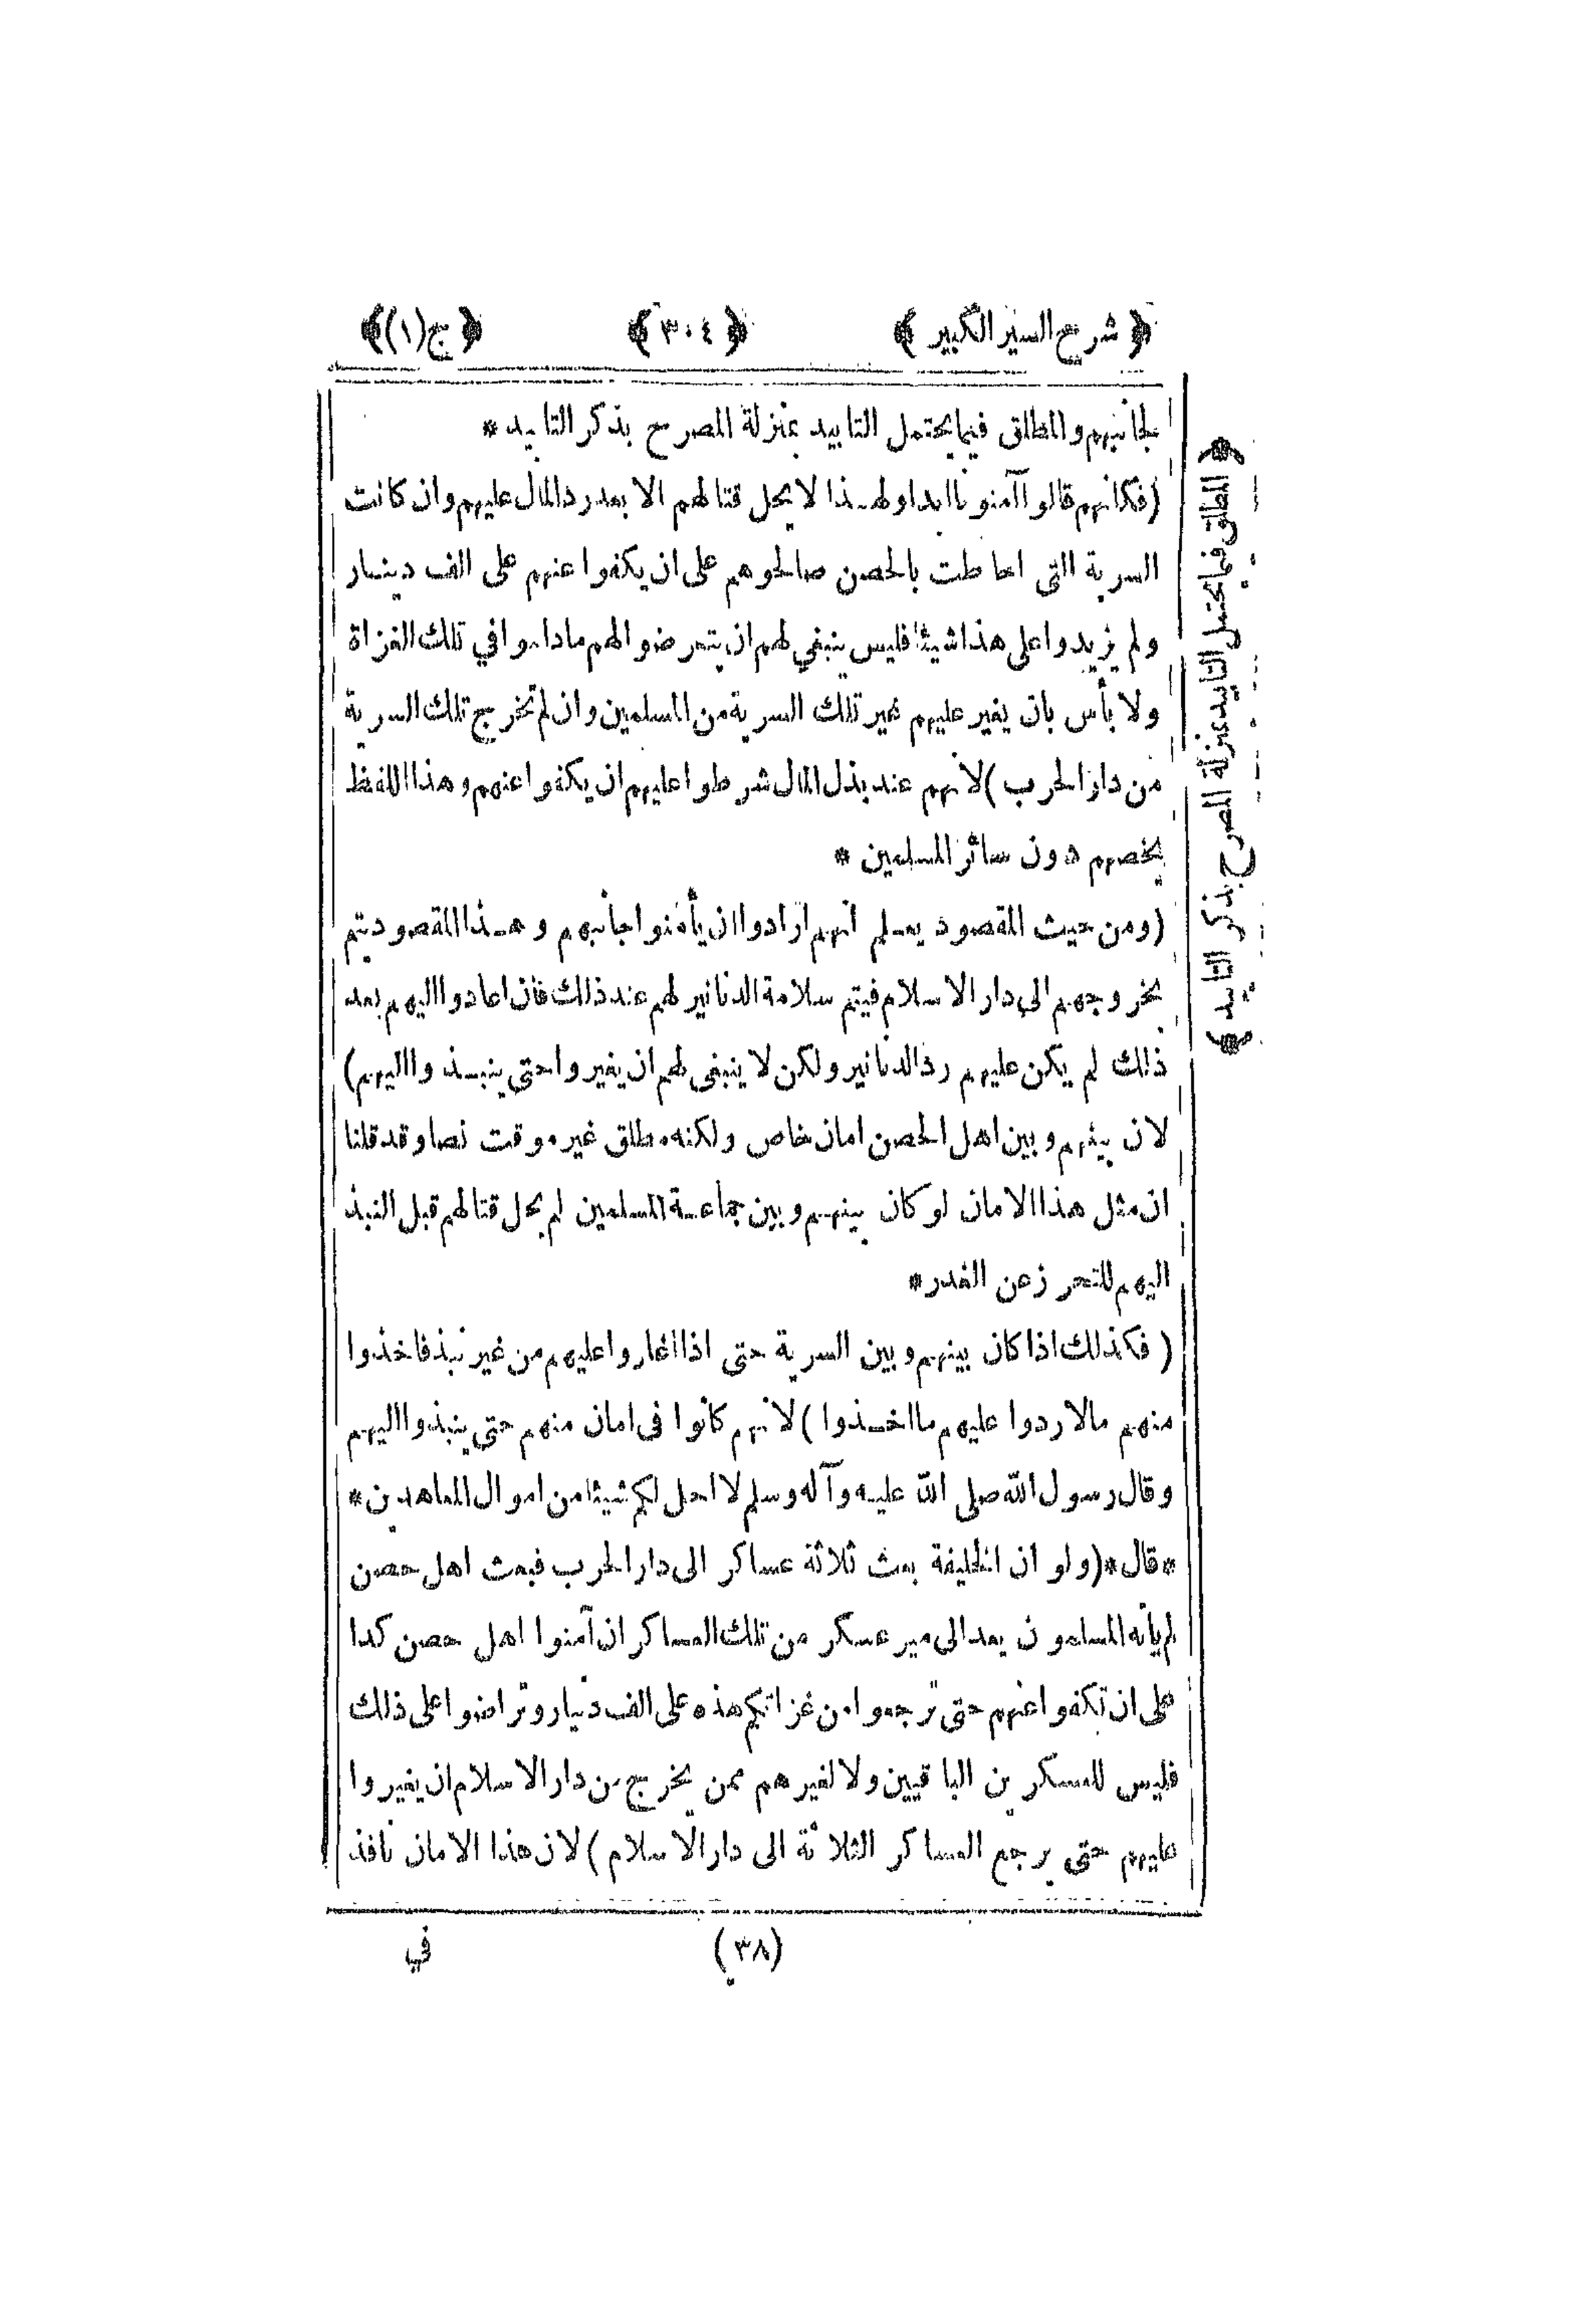 ﴿ شرح السير الكبير ﴾ ﴿ ٣٠٤ ﴾ ﴿ ج (١) ﴾
لجانبهم والمطلق فيما يحتمل التابيد بمنزلة المصرح بذكر التابيد *
(فكانهم قالوا آمنونا ابدا ولهذا لا يحل قتالهم الا بعد رد المال عليهم وان كانت
السرية التى احاطت بالحصن صالحوهم على ان يكفوا عنهم على الف دينار
ولم يزيدوا على هذا شيئا فليس ينبغي لهم ان يتعرضوا لهم ما داموا في تلك الغزاة
ولا بأس بان يغير عليهم غير تلك السرية من المسلمين وان لم تخرج تلك السرية
من دار الحرب) لانهم عند بذل المال شرطوا عليهم ان يكفوا عنهم وهذا اللفظ
يخصهم دون سائر المسلمين *
(ومن حيث المقصود يعلم انهم ارادوا ان يأمنوا جانبهم وهذا المقصود يتم
بخروجهم الى دار الاسلام فيتم سلامة الدنانير لهم عند ذلك فان اعادوا اليهم بعد
ذلك لم يكن عليهم رد الدنانير ولكن لا ينبغى لهم ان يغيروا حتى ينبذوا اليهم)
لان بينهم وبين اهل الحصن امان خاص ولكنه مطلق غير موقت نصا وقد قلنا
ان مثل هذا الامان لو كان بينهم وبين جماعة المسلمين لم يحل قتالهم قبل النبذ
اليهم للتحرز عن الغدر *
(فكذلك اذا كان بينهم وبين السرية حتى اذا اغاروا عليهم من غير نبذ فاخذوا
منهم مالا ردوا عليهم ما اخذوا) لانهم كانوا فى امان منهم حتى ينبذوا اليهم
وقال رسول الله صلى الله عليه وآله وسلم لا احل لكم شيئا من اموال المعاهدين *
* قال * (ولو ان الخليفة بعث ثلاثة عساكر الى دار الحرب فبعث اهل حصن
لم يأته المسلمون بعد الى مير عسكر من تلك العساكر ان آمنوا اهل حصن كذا
على ان تكفوا عنهم حتى ترجعوا من غزاتكم هذه على الف دينار وتراضوا على ذلك
فليس للعسكرين الباقيين ولا لغيرهم ممن يخرج من دار الاسلام ان يغيروا
عليهم حتى يرجع العساكر الثلاثة الى دار الاسلام) لان هذا الامان نافذ
(٣٨) في
﴿ المطلق فيما يحتمل التابيد بمنزلة المصرح بذكر التابيد ﴾